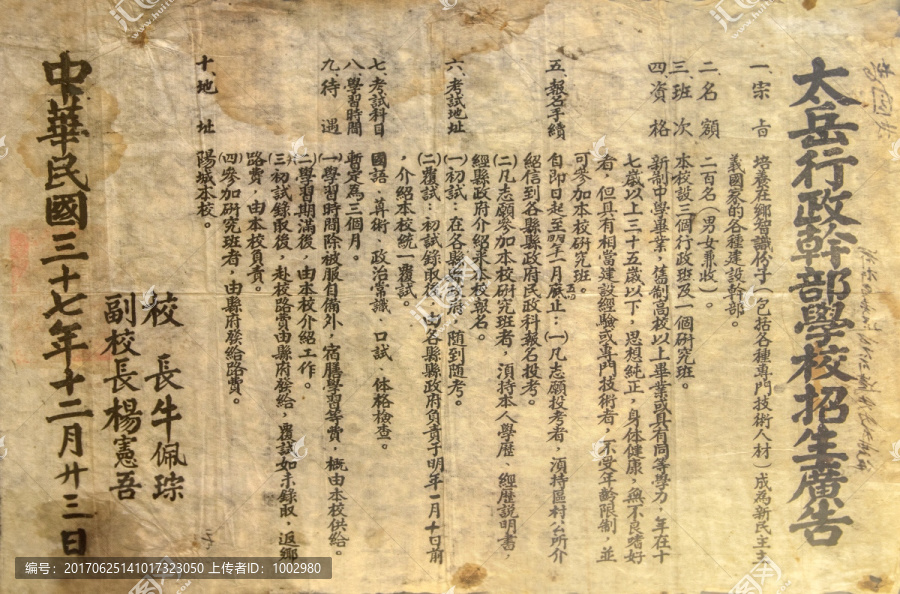 太岳行政幹部學校招生廣告
一、宗旨
培養在鄉智識份子（包括各種專門技術人材）成為新民主主
義國家的各種建設幹部。
二、名額
二百名（男女兼收）。
三、班次
本校設三個行政班及一個研究班。
四、資格
新制中學畢業，舊制高校以上畢業或具有同等學力，年在十
七歲以上三十五歲以下，思想純正，身体健康，無不良嗜好
者，但具有相當建設經驗或專門技術者，不受年齡限制，並
可參加本校研究班。
五、報名手續
自即日起至明年一月底止：㈠凡志願投考者，須持區村公所介
紹信到各縣縣政府民政科報名投考。
㈡凡志願參加本校研究班者，須持本人學歷、經歷說明書，
經縣政府介紹來本校報名。
六、考試地址
㈠初試：在各縣縣政府，随到随考。
㈡覆試：初試錄取後，由各縣縣政府負責于明年一月十日前
，介紹本校統一覆試。
七、考試科目
國語、算術、政治常識、口試、体格檢查。
八、學習時間
暫定為三個月。
九、待遇
㈠學習時間除被服自備外，宿膳學習等費，概由本校供給。
㈡學習期滿後，由本校介紹工作。
㈢初試錄取後，赴校路費由縣府發給，覆試如未錄取，返鄉
路費，由本校負責。
㈣參加研究班者，由縣府發給路費。
十、地址
陽城本校。
校長牛佩琮
副校長楊憲吾
中華民國三十七年十二月廿三日
编号：20170625141017323050 上传者ID：1002980